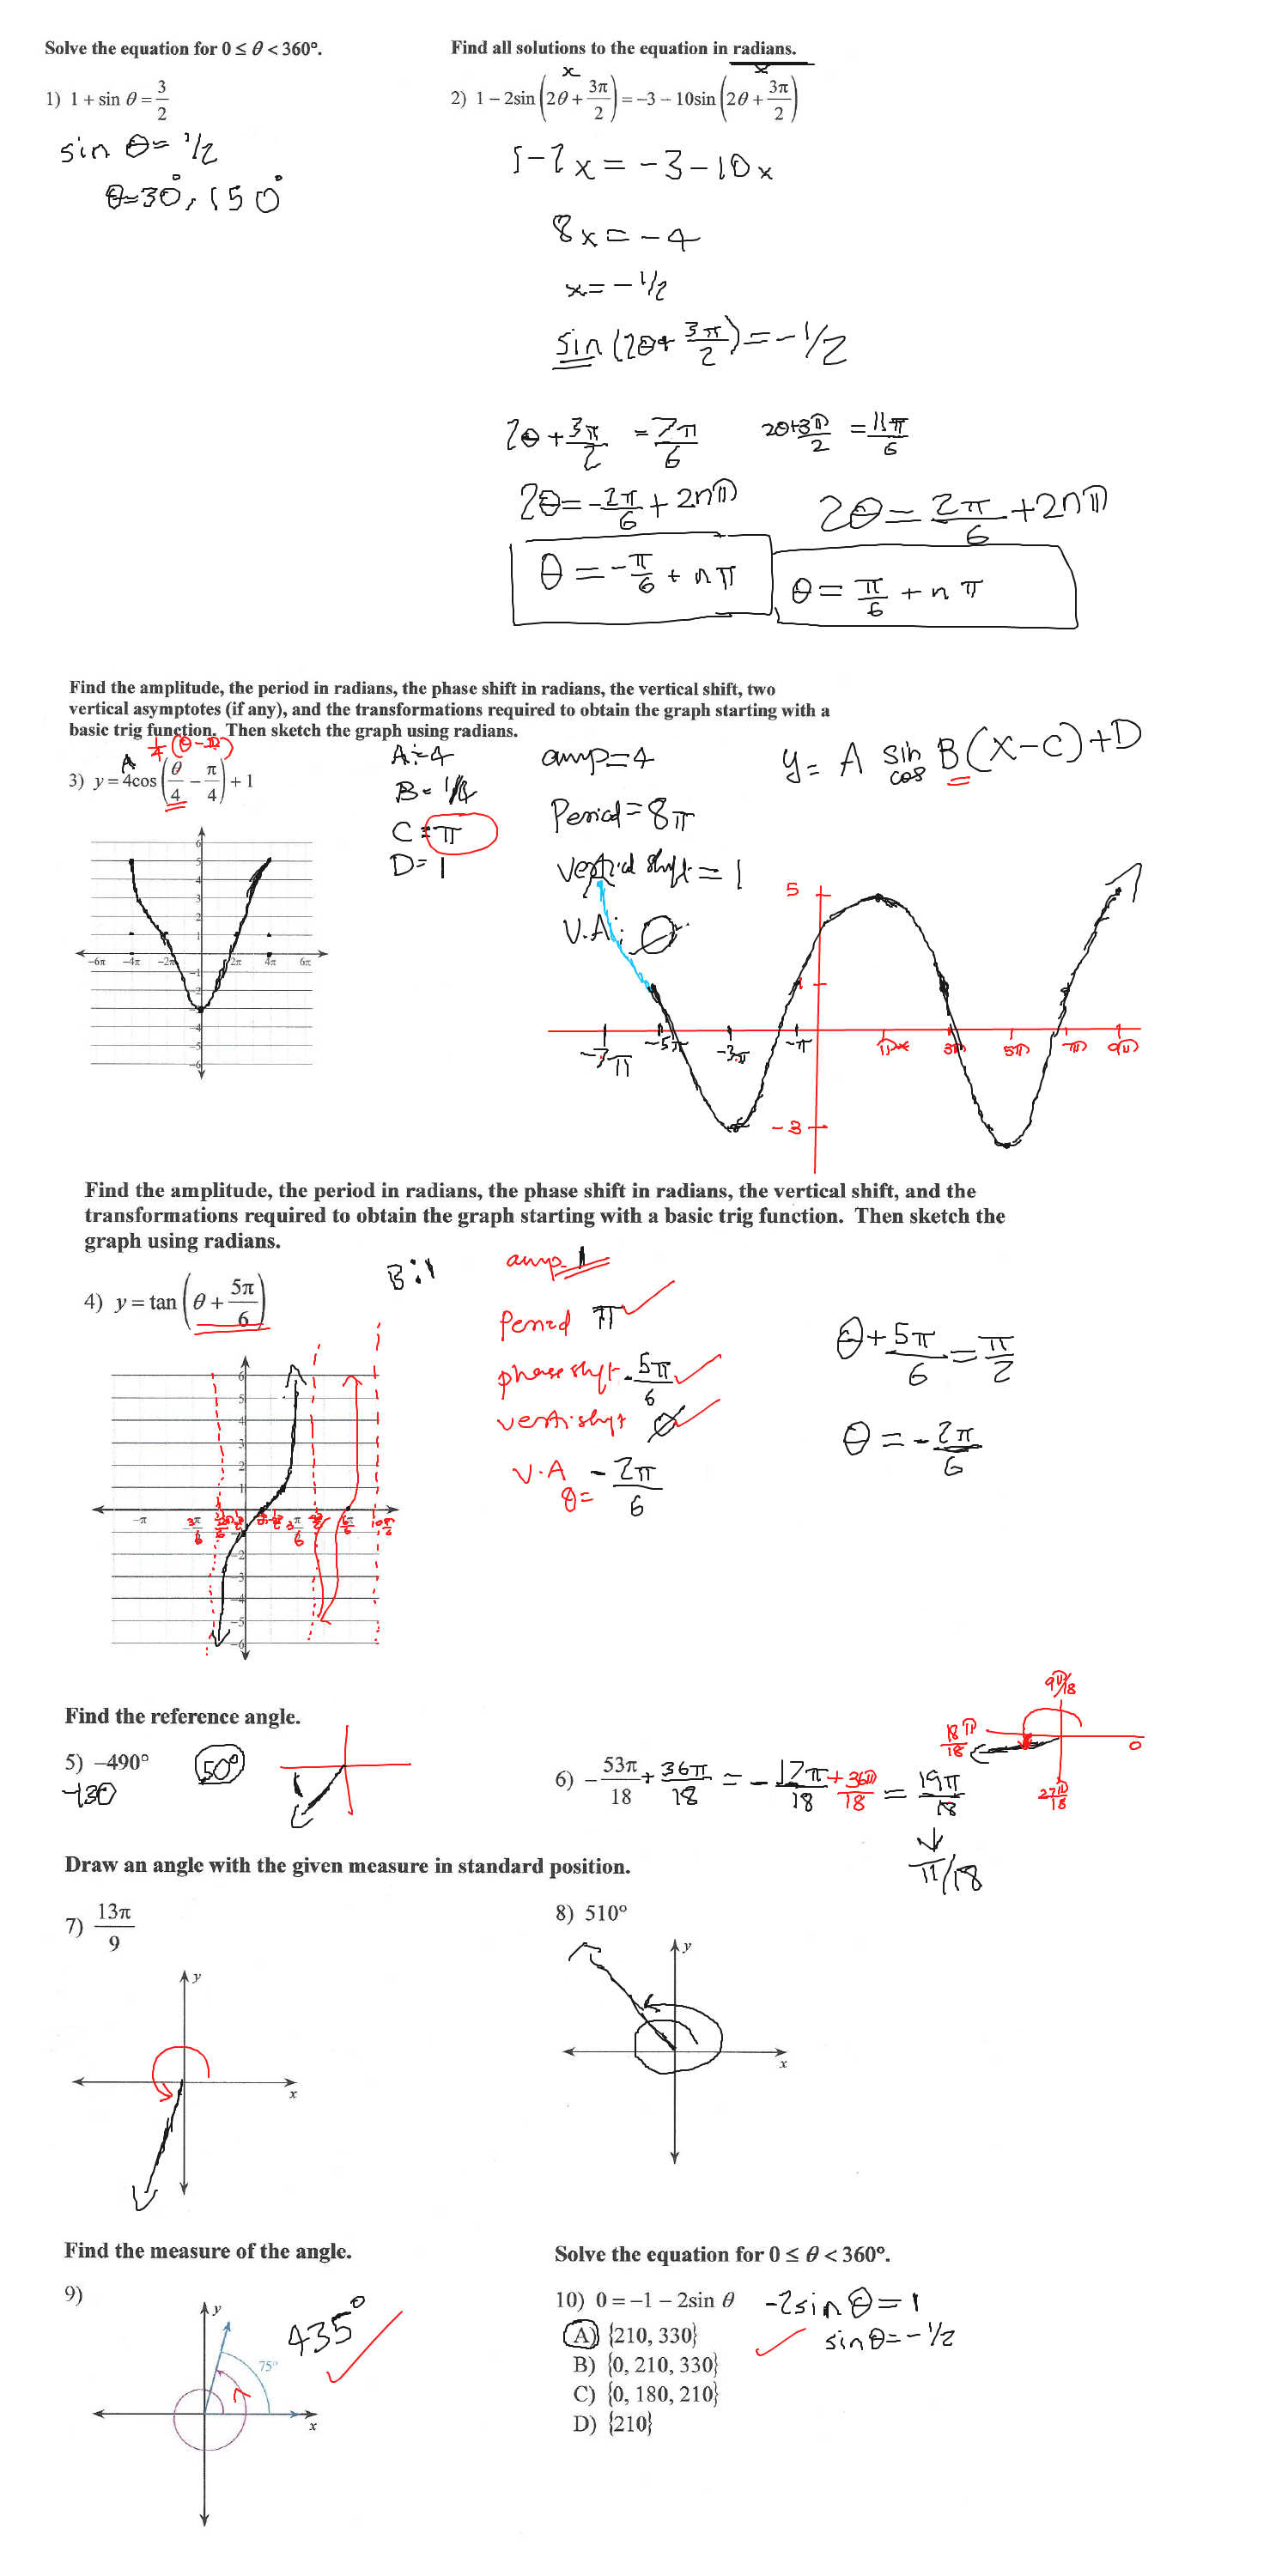 Solve the equation for 0 ≤ θ < 360°.
1) 1 + sin θ = 3/2
sin θ = 1/2
θ = 30°, 150°
Find all solutions to the equation in radians.
x x
2) 1 − 2sin(2θ + 3π/2) = −3 − 10sin(2θ + 3π/2)
1 − 2x = −3 − 10x
8x = −4
x = −1/2
sin(2θ + 3π/2) = −1/2
2θ + 3π/2 = 7π/6
2θ + 3π/2 = 11π/6
2θ = −2π/6 + 2nπ
2θ = 2π/6 + 2nπ
θ = −π/6 + nπ
θ = π/6 + nπ
Find the amplitude, the period in radians, the phase shift in radians, the vertical shift, two
vertical asymptotes (if any), and the transformations required to obtain the graph starting with a
basic trig function. Then sketch the graph using radians.
1/4(θ − π)
A
3) y = 4cos(θ/4 − π/4) + 1
A = 4
B = 1/4
C = π
D = 1
amp = 4
Period = 8π
Vertical shift = 1
V.A: ∅
y = A sin cos B(x − C) + D
6
5
4
3
2
1
−6π −4π −2π 2π 4π 6π
−1
−2
−4
−5
−6
5
1
−7π −5π −3π −π π 3π 5π 7π 9π
−3
Find the amplitude, the period in radians, the phase shift in radians, the vertical shift, and the
transformations required to obtain the graph starting with a basic trig function. Then sketch the
graph using radians.
4) y = tan(θ + 5π/6)
B = 1
amp = 1
Period π
phase shift −5π/6
verti shift ∅
V.A θ = −2π/6
θ + 5π/6 = π/2
θ = −2π/6
6
5
4
3
2
1
−π
−2
−3
−4
−5
−6
Find the reference angle.
5) −490°
−130
50°
6) −53π/18 + 36π/18 = −17π/18 + 36π/18 = 19π/18
↓
π/18
9π/18
18π/18
0
27π/18
Draw an angle with the given measure in standard position.
7) 13π/9
y
x
8) 510°
y
x
Find the measure of the angle.
9)
y
75°
x
435°
Solve the equation for 0 ≤ θ < 360°.
10) 0 = −1 − 2sin θ
−2sin θ = 1
sin θ = −1/2
A) {210, 330}
B) {0, 210, 330}
C) {0, 180, 210}
D) {210}